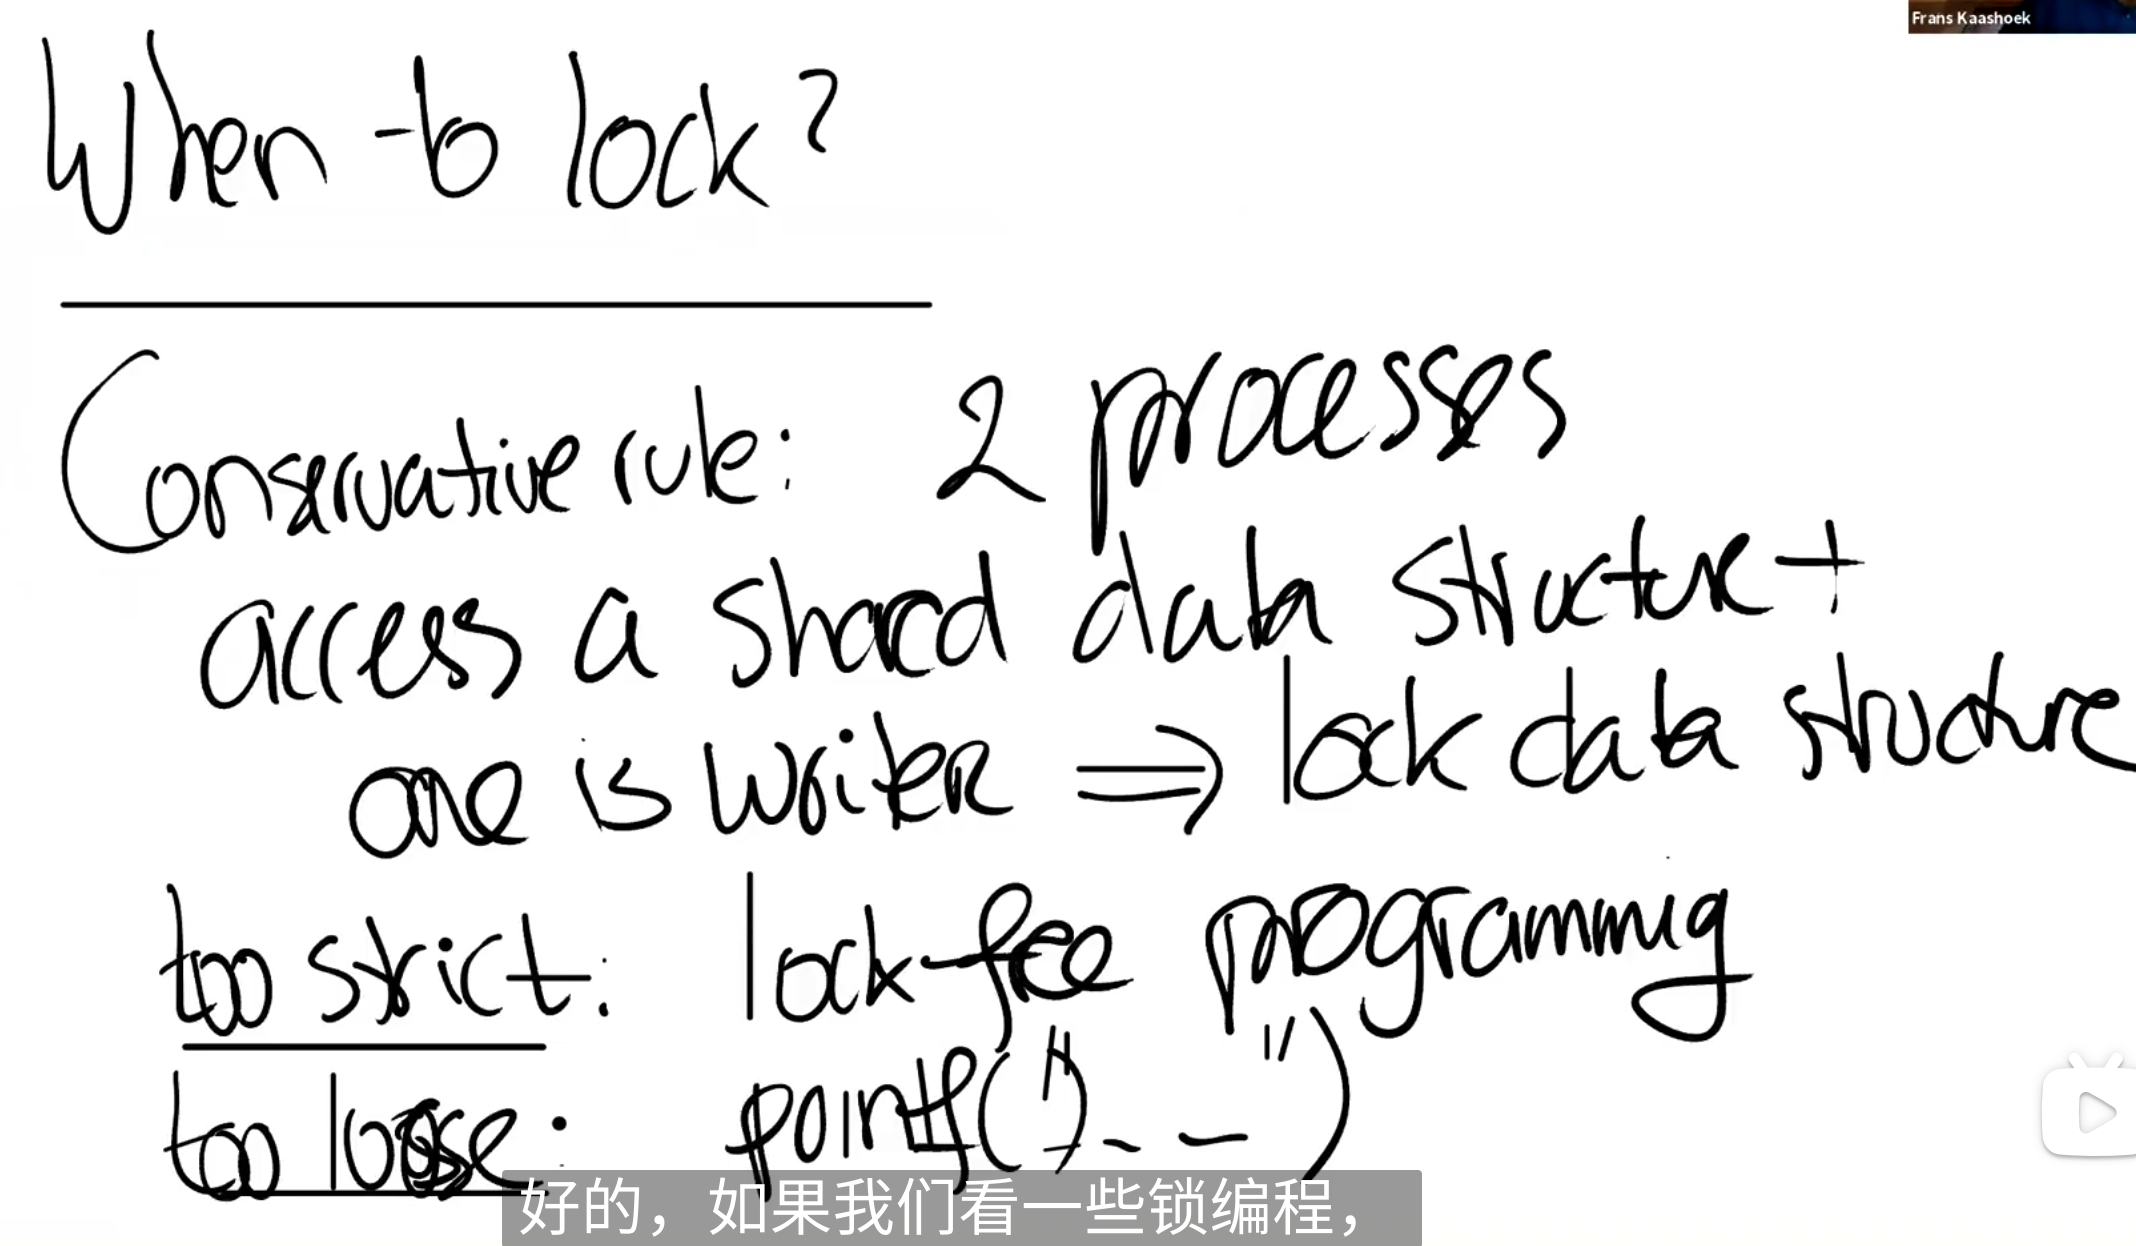 Frans Kaashoek
When to lock?
Conservative rule: 2 processes
access a shared data structure +
one is writer ⇒ lock data structure
too strict: lock-free programming
too loose: printf("- - -")
好的，如果我们看一些锁编程，